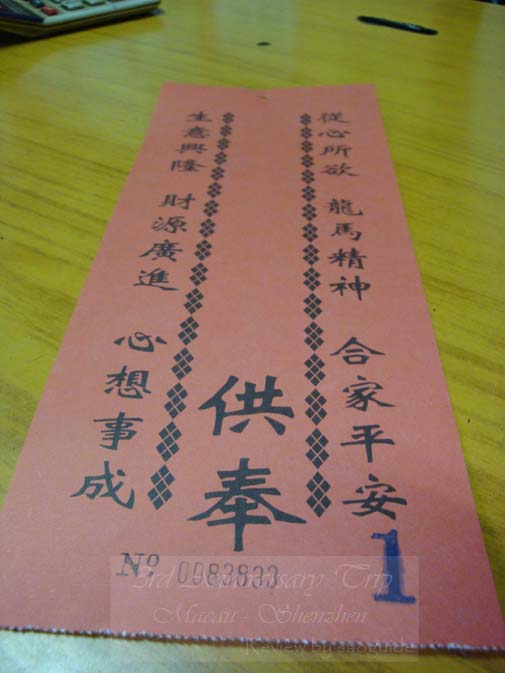 從心所欲 龍馬精神 合家平安
供奉
生意興隆 財源廣進 心想事成
Nº
1
3rd Anniversary Trip
Macau - Shenzhen
Review by